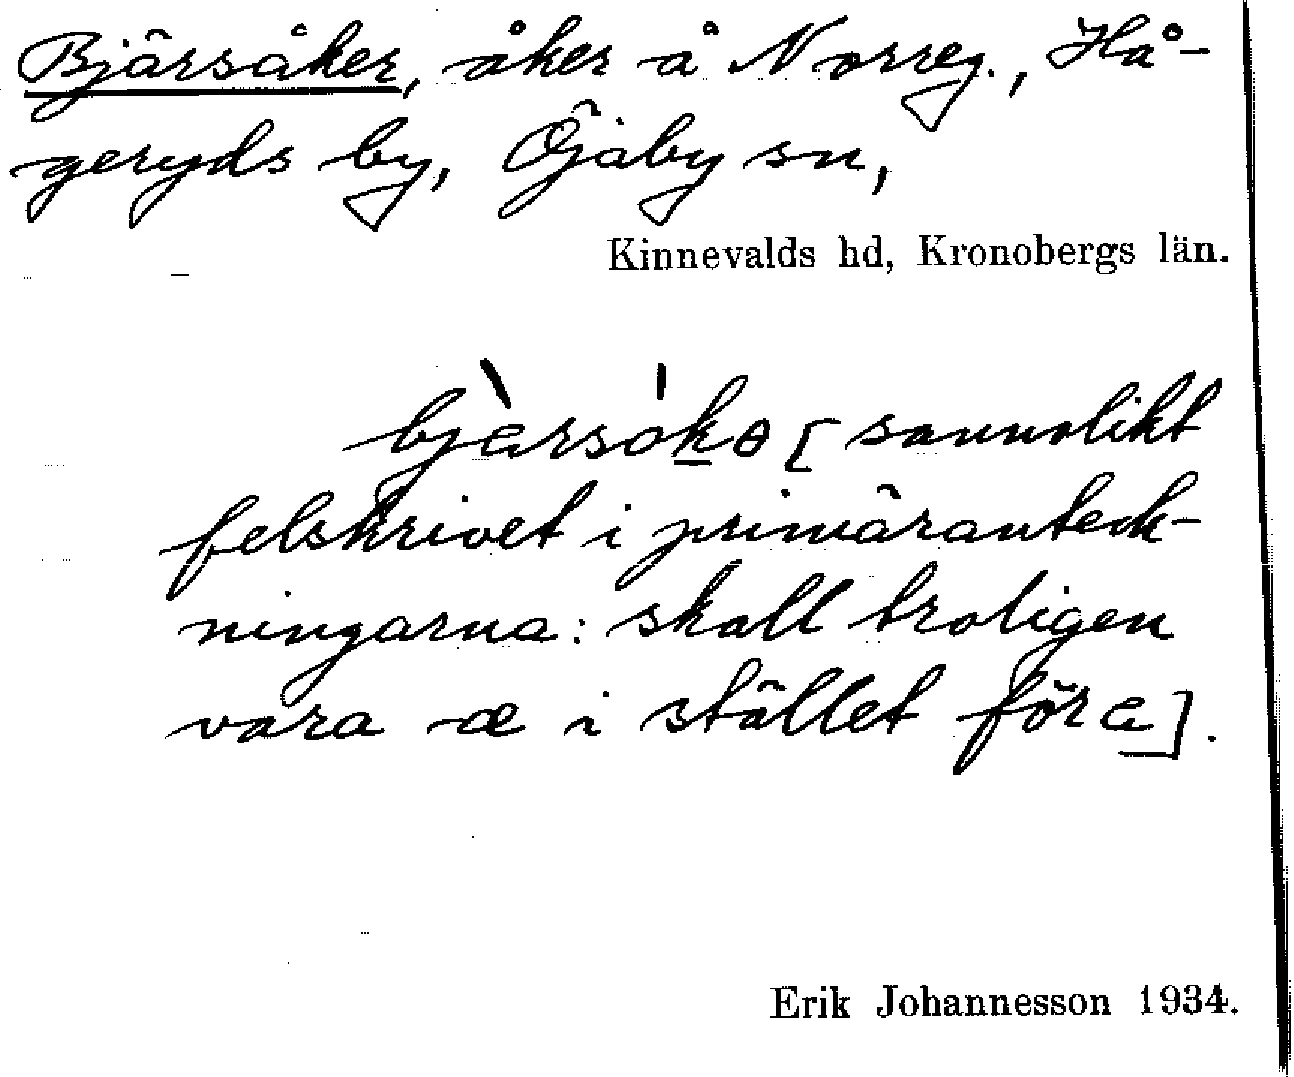 Bjärsåker, åker å Norreg., Hå-
geryds by, Öjaby sn,
Kinnevalds hd, Kronobergs län.
bjèrsókɵ [sannolikt
felskrivet i primäranteck-
ningarna: skall troligen
vara æ i stället för e].
Erik Johannesson 1934.